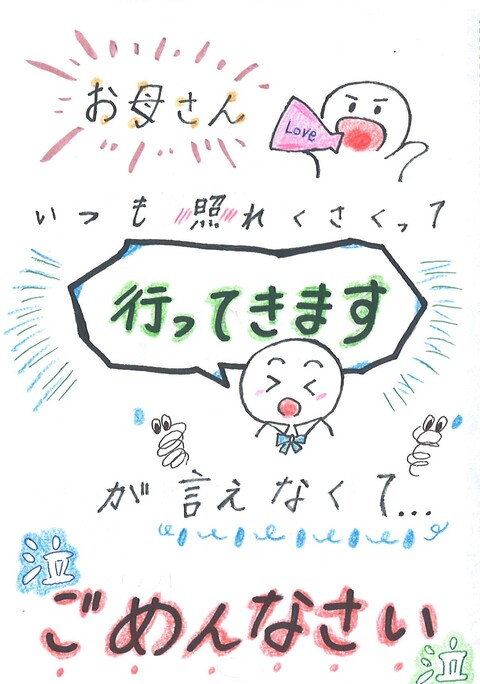 お母さん
Love
いつも照れくさくって
行ってきます
が言えなくて…
泣
ごめんなさい
泣